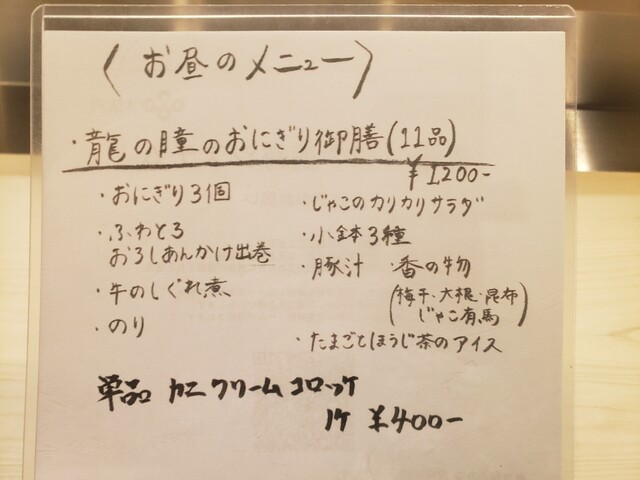 〈お昼のメニュー〉
・龍の瞳のおにぎり御膳(11品)
¥1200-
・おにぎり3個
・ふわとろ
おろしあんかけ出巻
・牛のしぐれ煮
・のり
・じゃこのカリカリサラダ
・小鉢3種
・豚汁 ・香の物
(梅干・大根・昆布
じゃこ有馬)
・たまごとほうじ茶のアイス
単品 カニクリームコロッケ
1ケ ¥400-